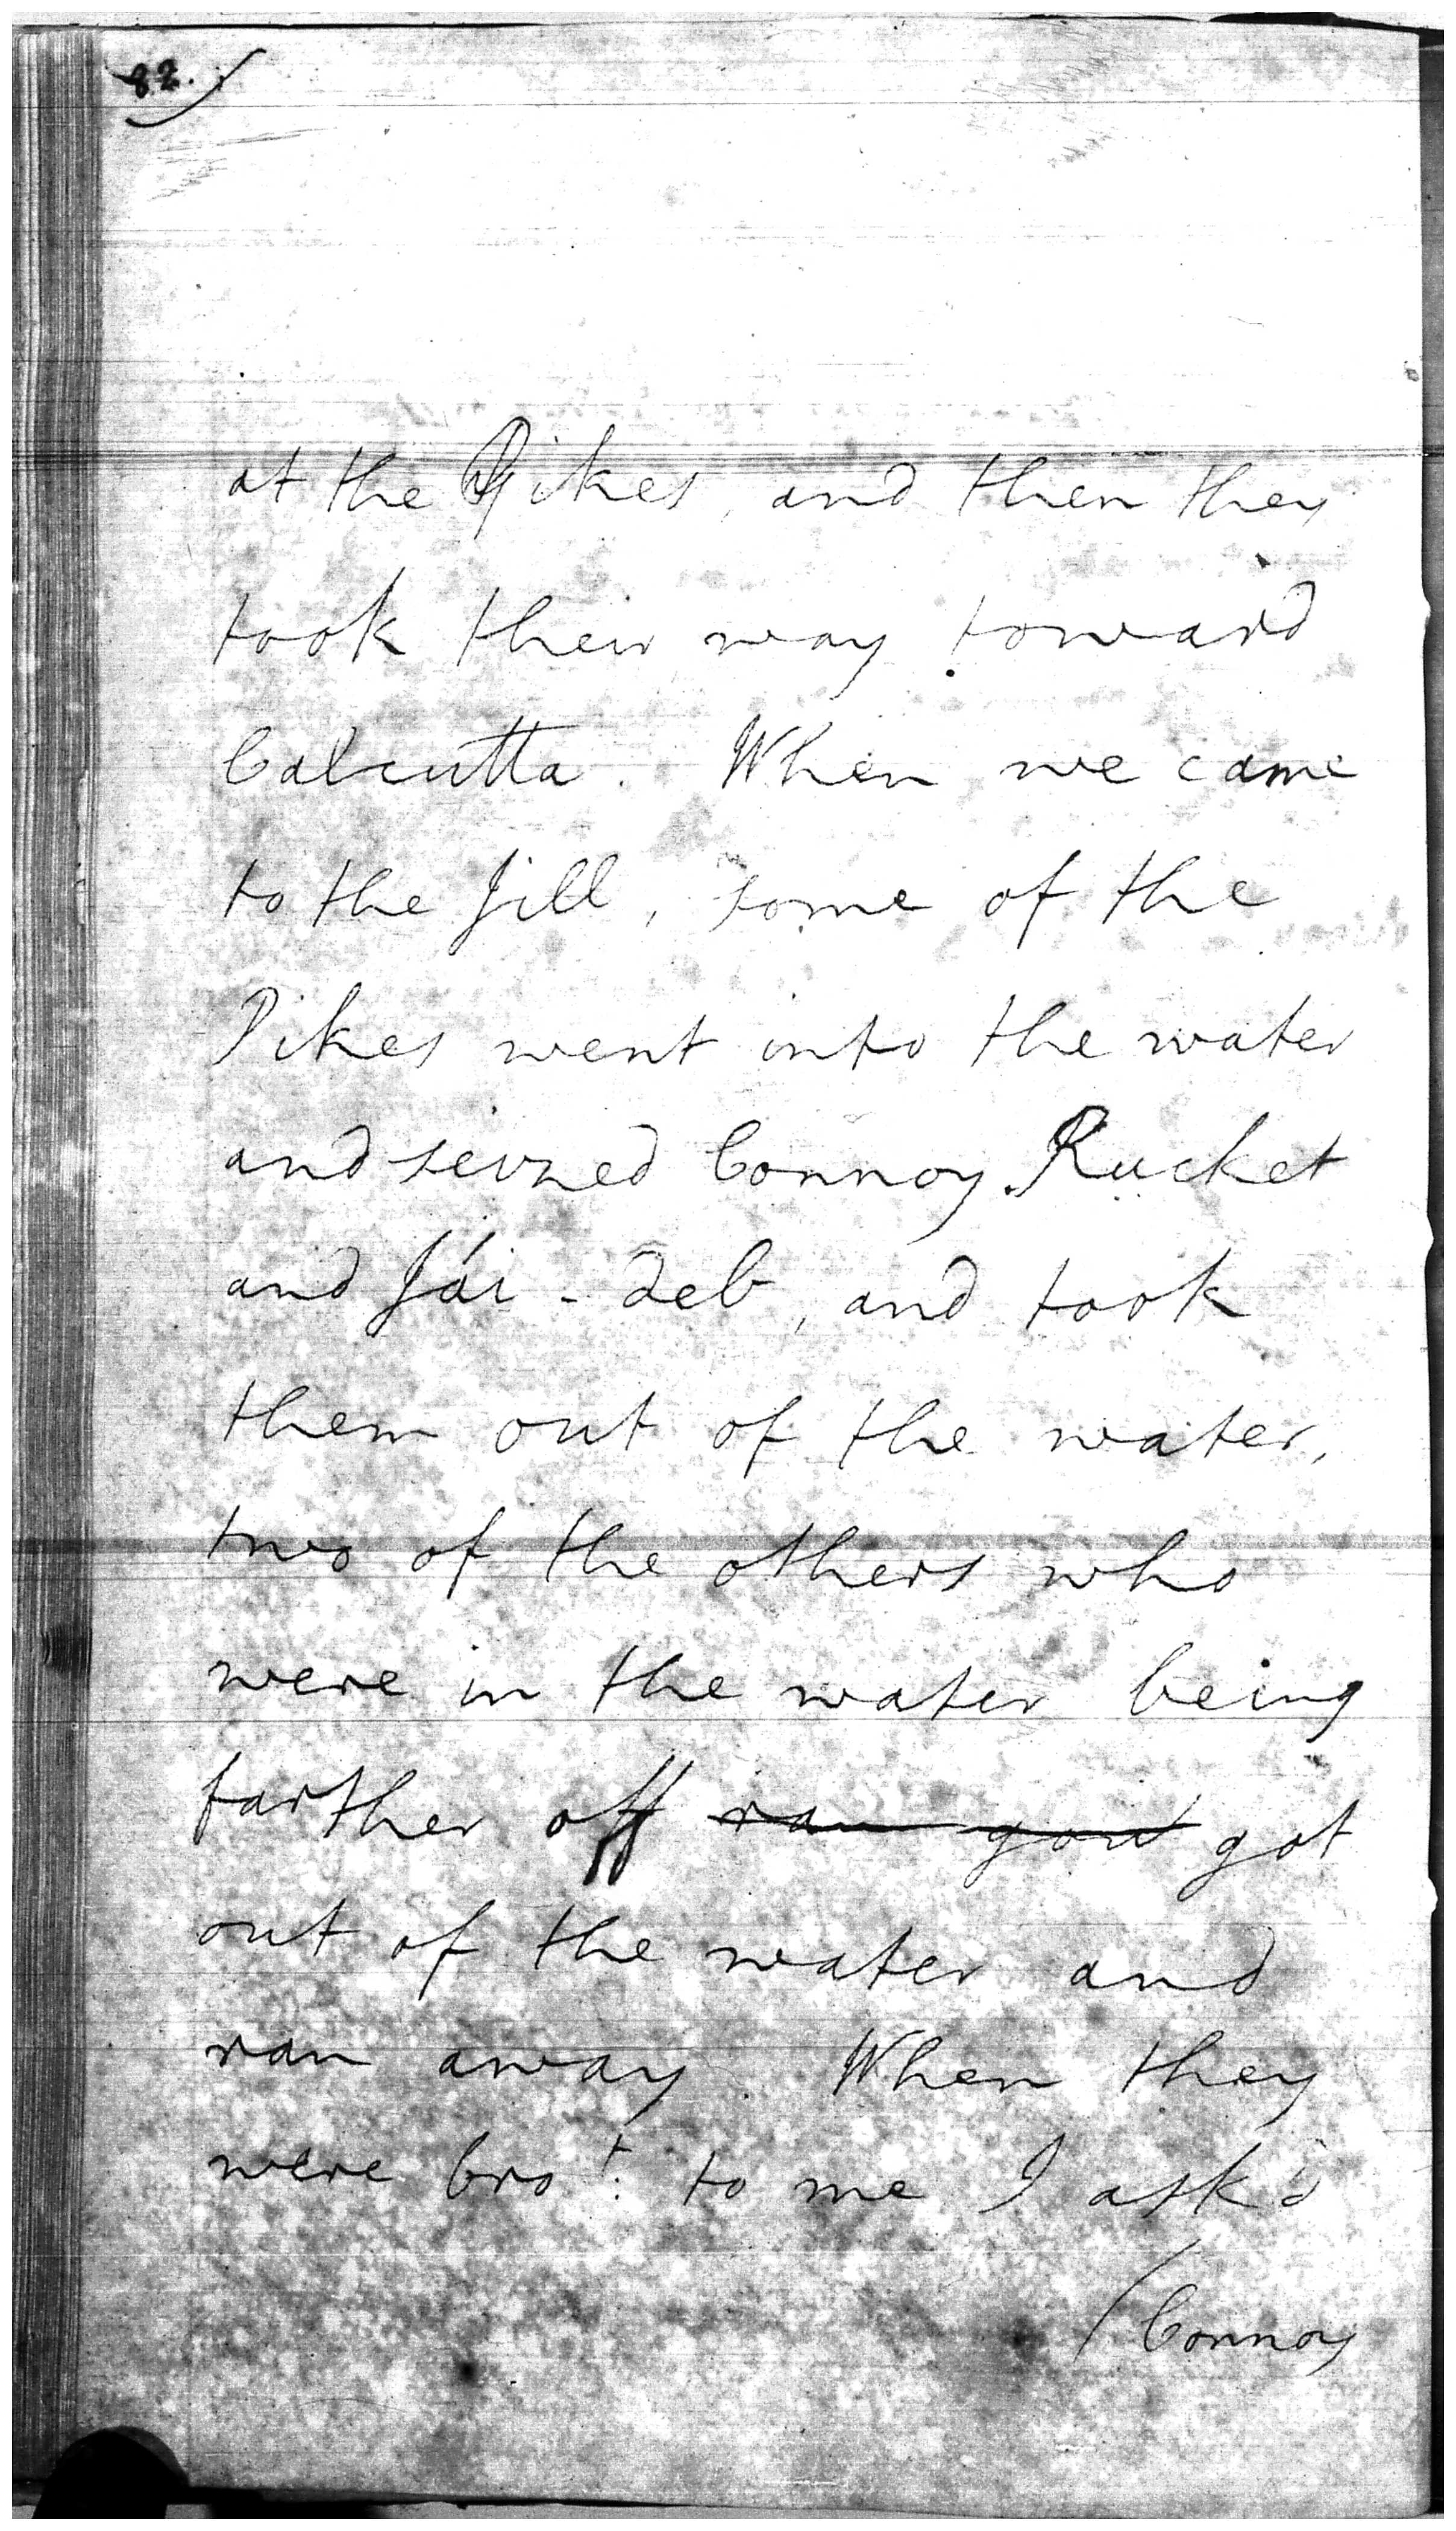 82.
at the Pikes, and then they
took their way toward
Calcutta. When we came
to the Jill, some of the
Pikes went into the water
and seized Connoy Rucket
and Jái-deb, and took
them out of the water,
two of the others who
were in the water being
farther off ran got
out of the water and
ran away. When they
were bro't. to me I ask'd
/Connoy